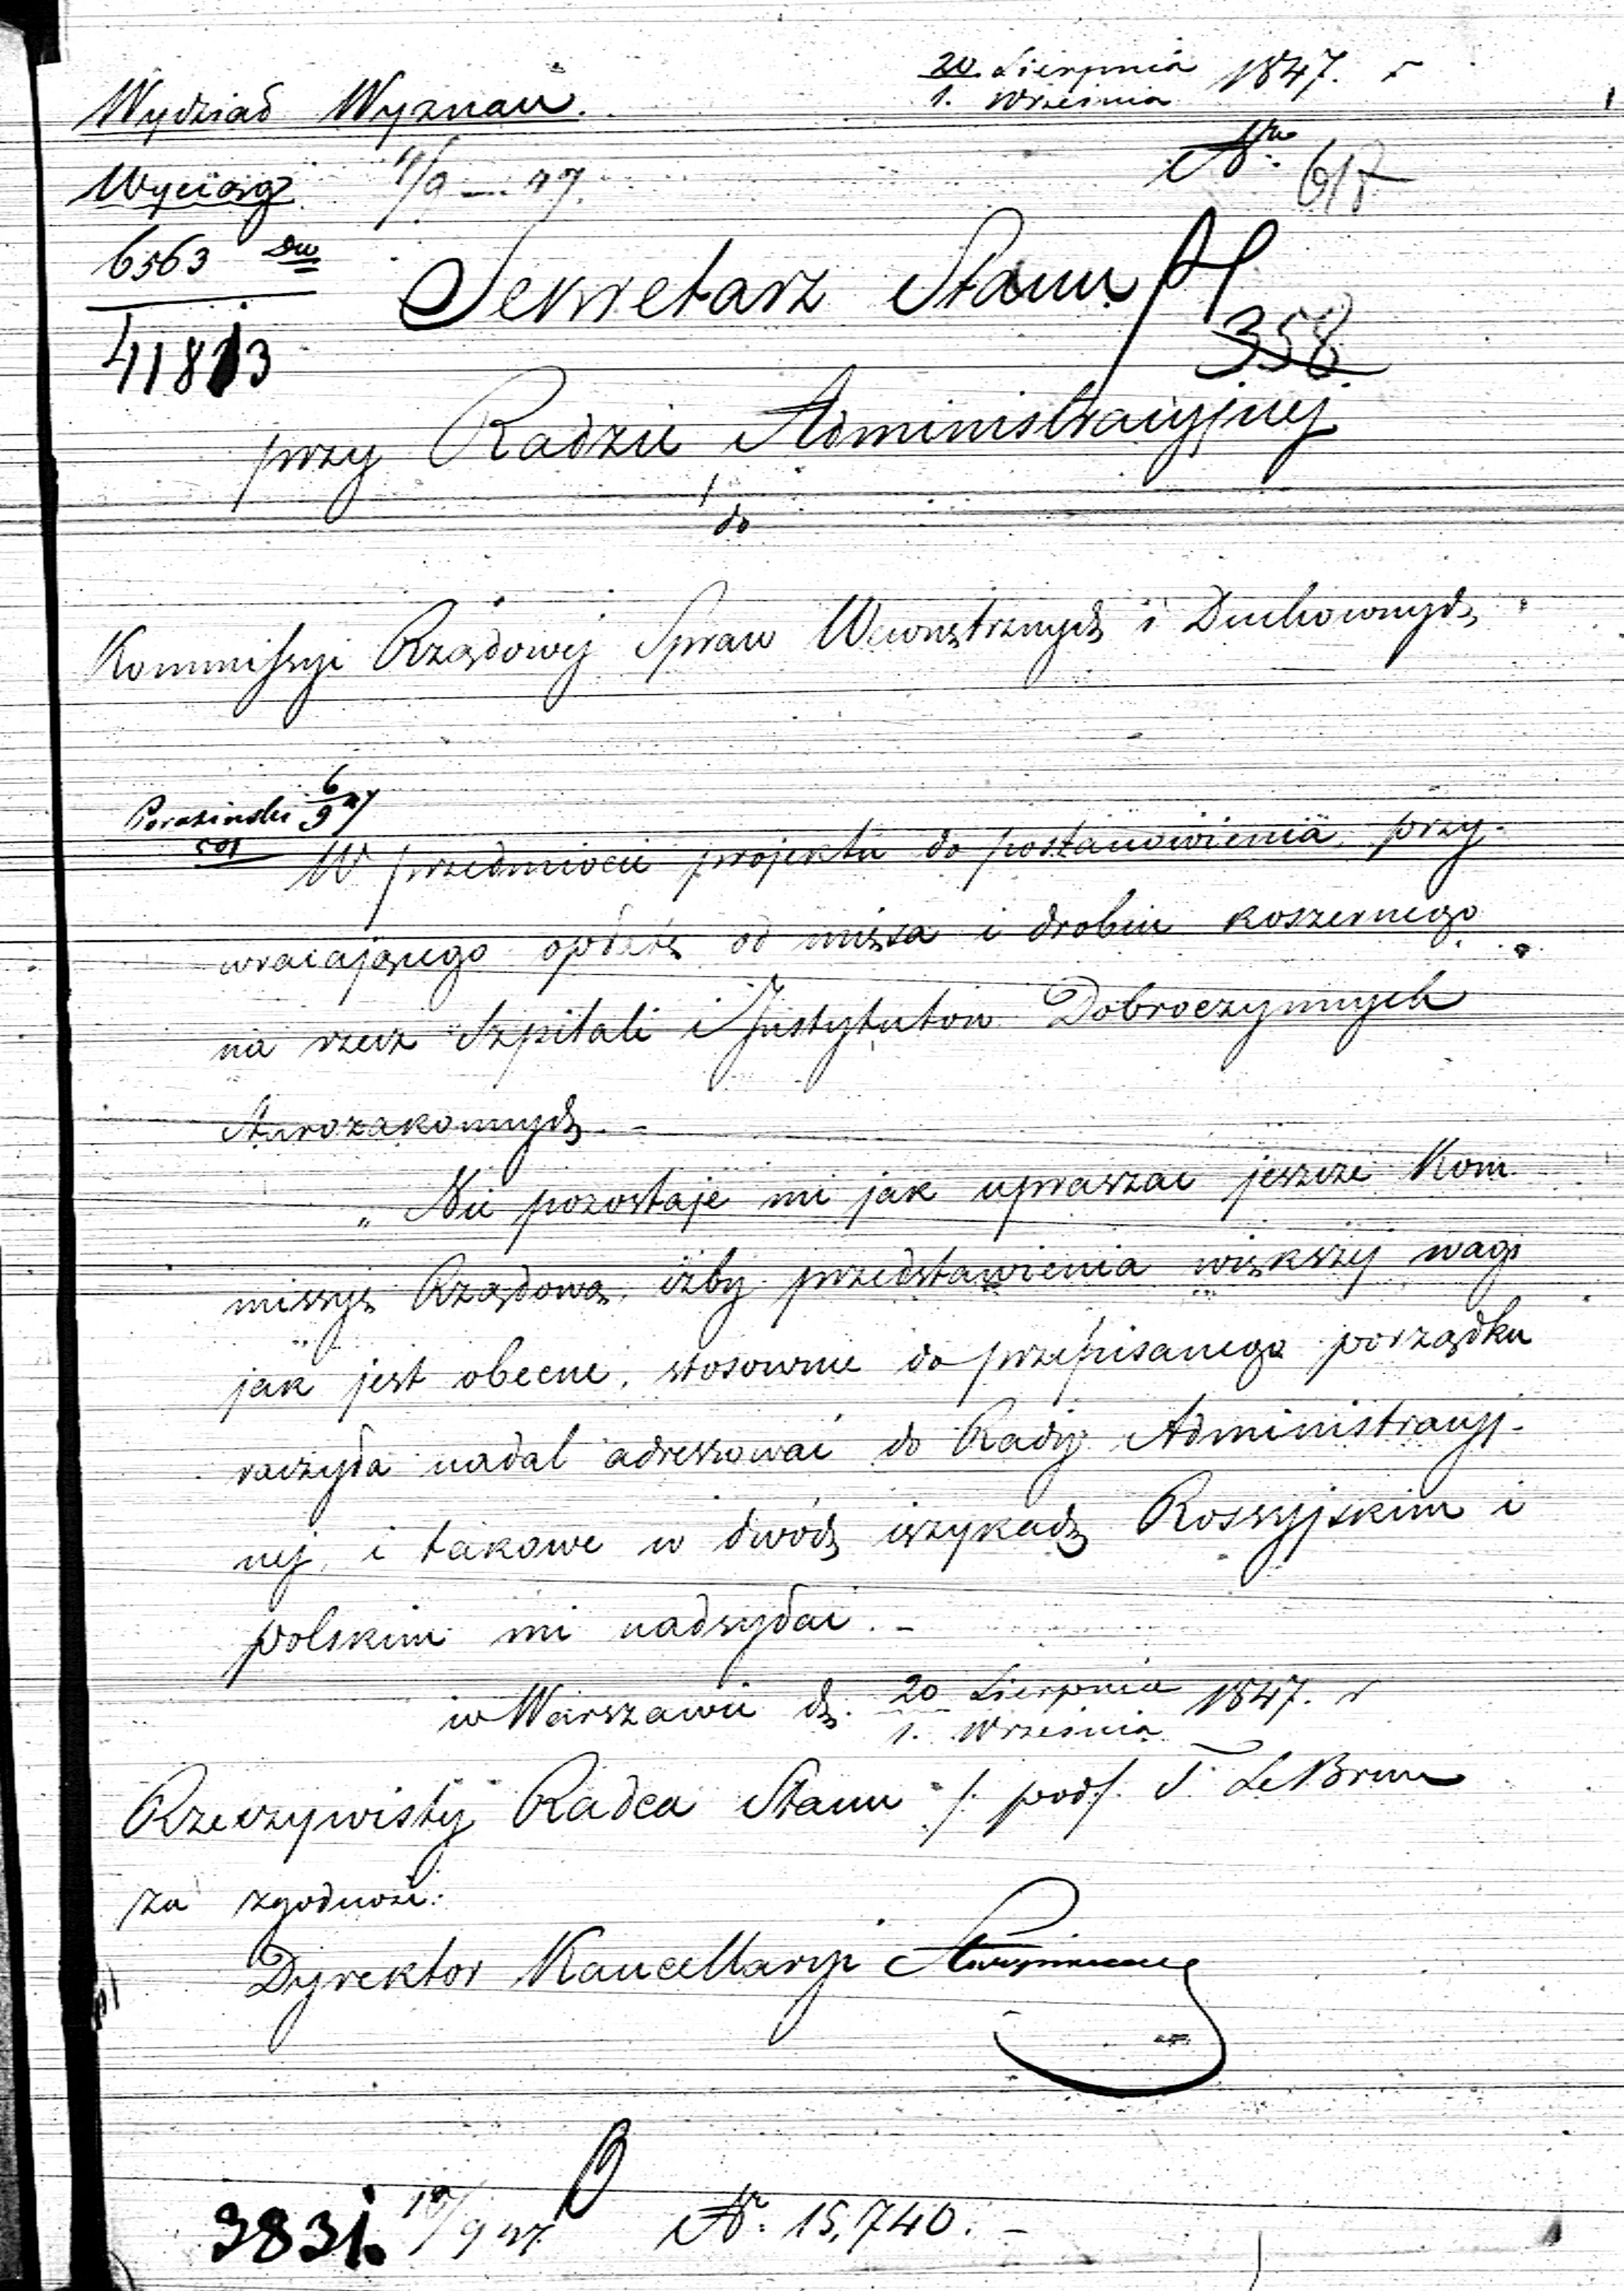 20 Sierpnia 1847. r
1. Września
Wydział Wyznań.
Nr 617
Wyciąg 4/9 – 47.
6563
41813
Sekretarz Stanu
358
przy Radzie Administracyjnej
do
Kommissyi Rządowej Spraw Wewnętrznych i Duchownych
6/9 47
W przedmiocie projektu do postanowienia przy-
wracającego opłatę od mięsa i drobiu koszernego
na rzecz Szpitali i Instytutów Dobroczynnych
Starozakonnych. –
„ Nie pozostaje mi jak upraszać jeszcze Kom-
missyę Rządową, iżby przedstawienia większej wagi
jak jest obecne, stosownie do przepisanego porządku
raczyła nadal adressować do Rady Administracyj-
nej, i takowe w dwóch językach Rossyjskim i
polskim mi nadsyłać. –
w Warszawie d. 20 Sierpnia 1847. r
1. Września
Rzeczywisty Radca Stanu /. pod/. T. Le Brun
za zgodność:
Dyrektor Kancellaryi
3831. 10/9 47. Nr. 15,740. –